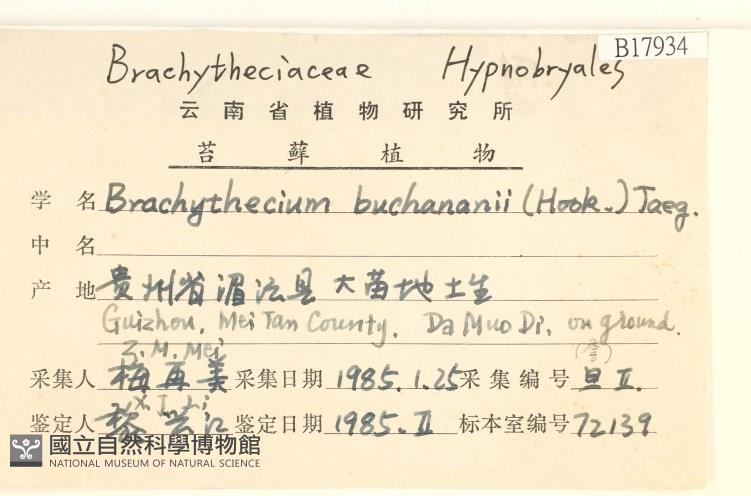 B17934
Brachytheciaceae Hypnobryales
云南省植物研究所
苔藓植物
学名 Brachythecium buchananii (Hook.) Jaeg.
中名
产地 贵州省湄法县大苗地土生
Guizhou, Mei Tan County. Da Muo Di, on ground.
Z. M. Mei
采集人 梅再美 采集日期 1985.1.25 采集编号 旦 II.
X. J. Li
鉴定人 黎兴江 鉴定日期 1985.II 标本室编号 72139
國立自然科學博物館
NATIONAL MUSEUM OF NATURAL SCIENCE